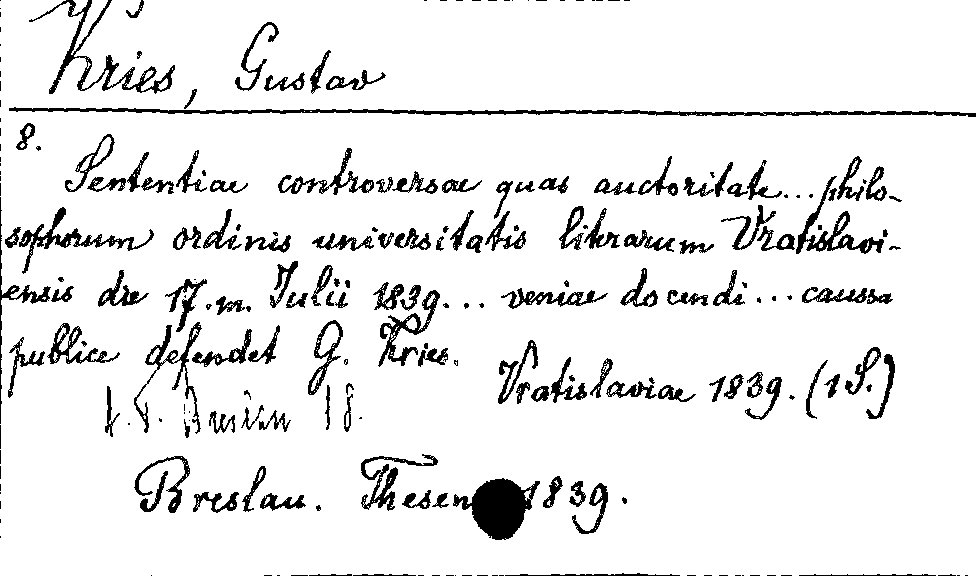 Kries, Gustav
8.
Sententiae controversae quas auctoritate... philo-
sophorum ordinis universitatis literarum Vratislavi-
ensis die 17. m. Julii 1839... veniae docendi... caussa
publice defendet G. Kries.
Vratislaviae 1839. (1 S.)
18.
Breslau. Thesen 1839.